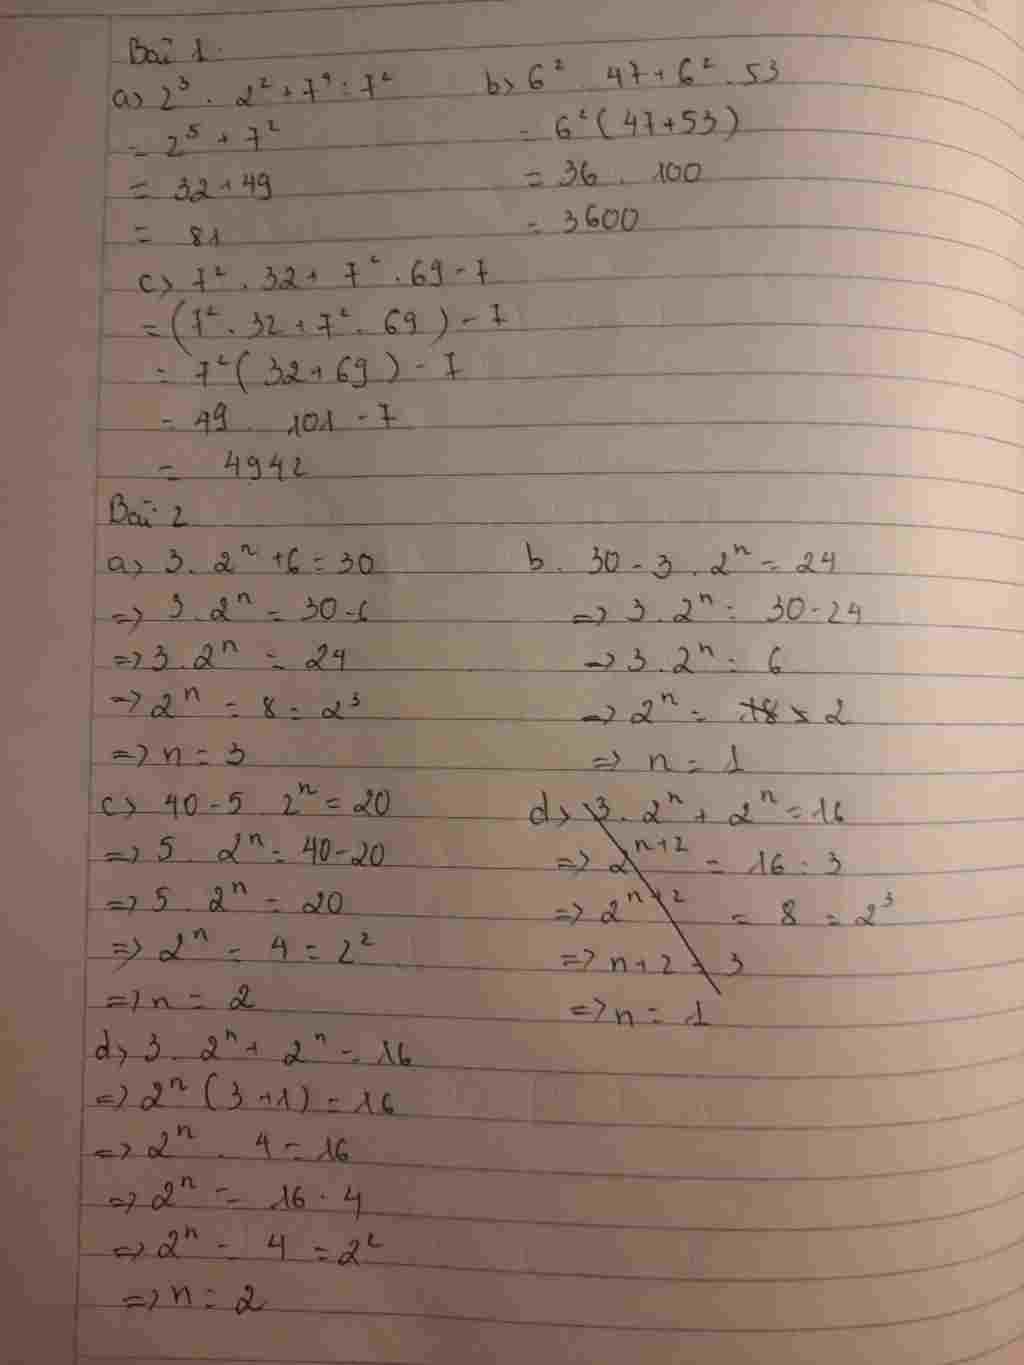 Bài 1:
a) 2³ . 2² + 7⁴ : 7²
= 2⁵ + 7²
= 32 + 49
= 81
b) 6² . 47 + 6² . 53
= 6² (47 + 53)
= 36 . 100
= 3600
c) 7² . 32 + 7² . 69 - 7
= (7² . 32 + 7² . 69) - 7
= 7² (32 + 69) - 7
= 49 . 101 - 7
= 4942
Bài 2
a) 3 . 2ⁿ + 6 = 30
=> 3 . 2ⁿ = 30 - 6
=> 3 . 2ⁿ = 24
=> 2ⁿ = 8 = 2³
=> n = 3
b. 30 - 3 . 2ⁿ = 24
=> 3 . 2ⁿ = 30 - 24
=> 3 . 2ⁿ = 6
=> 2ⁿ = 2
=> n = 1
c) 40 - 5 2ⁿ = 20
=> 5 . 2ⁿ = 40 - 20
=> 5 . 2ⁿ = 20
=> 2ⁿ = 4 = 2²
=> n = 2
d) 3 . 2ⁿ + 2ⁿ = 16
=> 2ⁿ⁺² = 16 : 3
=> 2ⁿ⁺² = 8 = 2³
=> n + 2 = 3
=> n = 1
d) 3 . 2ⁿ + 2ⁿ = 16
=> 2ⁿ (3 + 1) = 16
=> 2ⁿ . 4 = 16
=> 2ⁿ = 16 : 4
=> 2ⁿ = 4 = 2²
=> n = 2